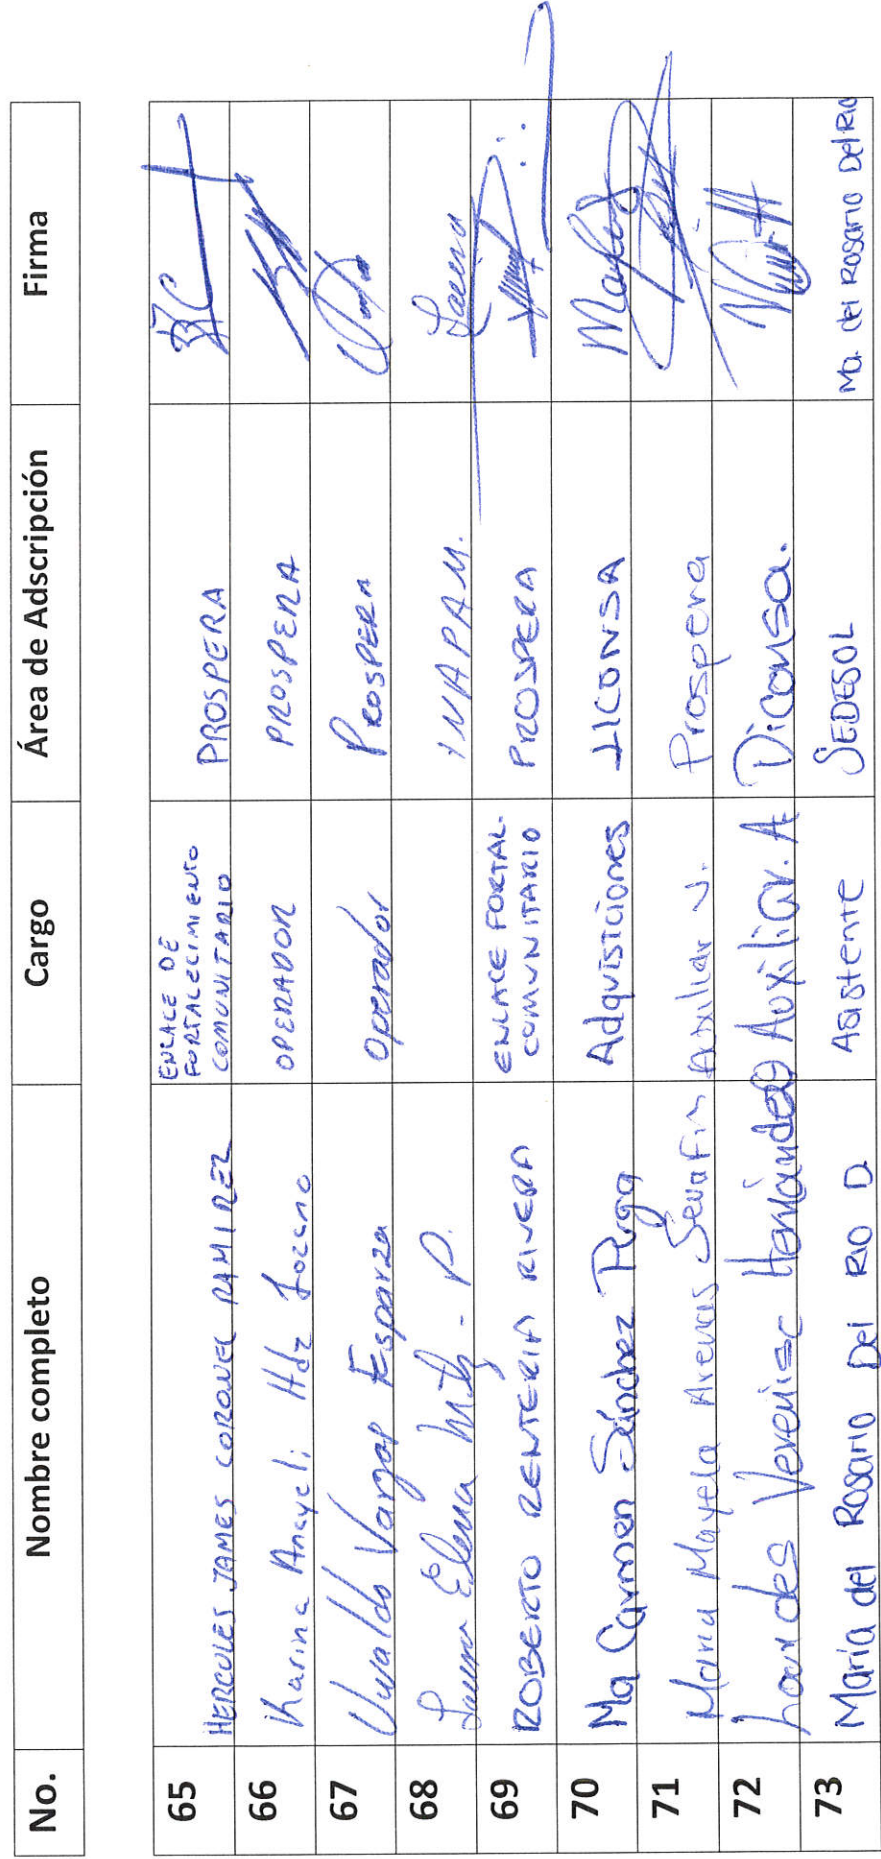 No. Nombre completo Cargo Área de Adscripción Firma
65 HERCULES JAMES CORONEL RAMIREZ ENLACE DE FORTALECIMIENTO COMUNITARIO PROSPERA
66 Karina Anayeli Hdz Lozano OPERADOR PROSPERA
67 Uvaldo Vargas Esparza Operador PROSPERA
68 Laura Elena Mtz. P. INAPAM. Laura
69 ROBERTO RENTERIA RIVERA ENLACE FORTAL. COMUNITARIO PROSPERA
70 Ma Carmen Sánchez Puga Adquisiciones LICONSA
71 Maria Mayela Arenas Serafin Auxiliar Prospera
72 Lourdes Verenisc Hernández Auxiliar. A Diconsa.
73 Maria del Rosario Del RIO D. Asistente SEDESOL Ma. del Rosario Del Rio